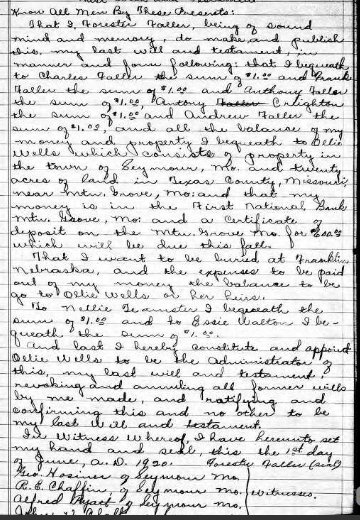 Know All Men By These Presents:
That I, Forester Faller, being of sound
mind and memory, do make and publish
this, my last will and testament, in
manner and form following: that I bequeath
to Charles Faller the sum of $1.00 and Frank
Faller the sum of $1.00 and Anthony Faller
the sum of $1.00, Antony Creighton
the sum of $1.00 and Andrew Faller the
sum of $1.00, and all the balance of my
money and property I bequeath to Ollie
Wells which consists of property in
the town of Seymour, Mo. and twenty
acres of land in Texas County, Missouri,
near Mtn. Grove, Mo: and that my
money is in the First National Bank
Mtn. Grove, Mo. and a Certificate of
deposit on the Mtn. Grove Mo. for
which will be due this fall.
That I want to be buried at Franklin,
Nebraska, and the expenses to be paid
out of my money the balance to be
go to Ollie Wells or her heirs.
To Nellie Teamster I bequeath the
sum of $1.00 and to Essie Walton I be-
queath the sum of $1.00.
And last I hereby constitute and appoint
Ollie Wells to be the administrator of
this, my last will and testament
revoking and annulling all former wills
by me made, and ratifying and
confirming this and no other to be
my last will and testament.
In Witness Whereof, I have hereunto set
my hand and seal, this the 1st day
of June, A.D. 1920. Forester Faller (seal)
Geo. Hosmer of Seymour Mo.
R. E. Chaffin, of Seymour Mo. Witnesses.
Alfred Wyatt of Seymour Mo.